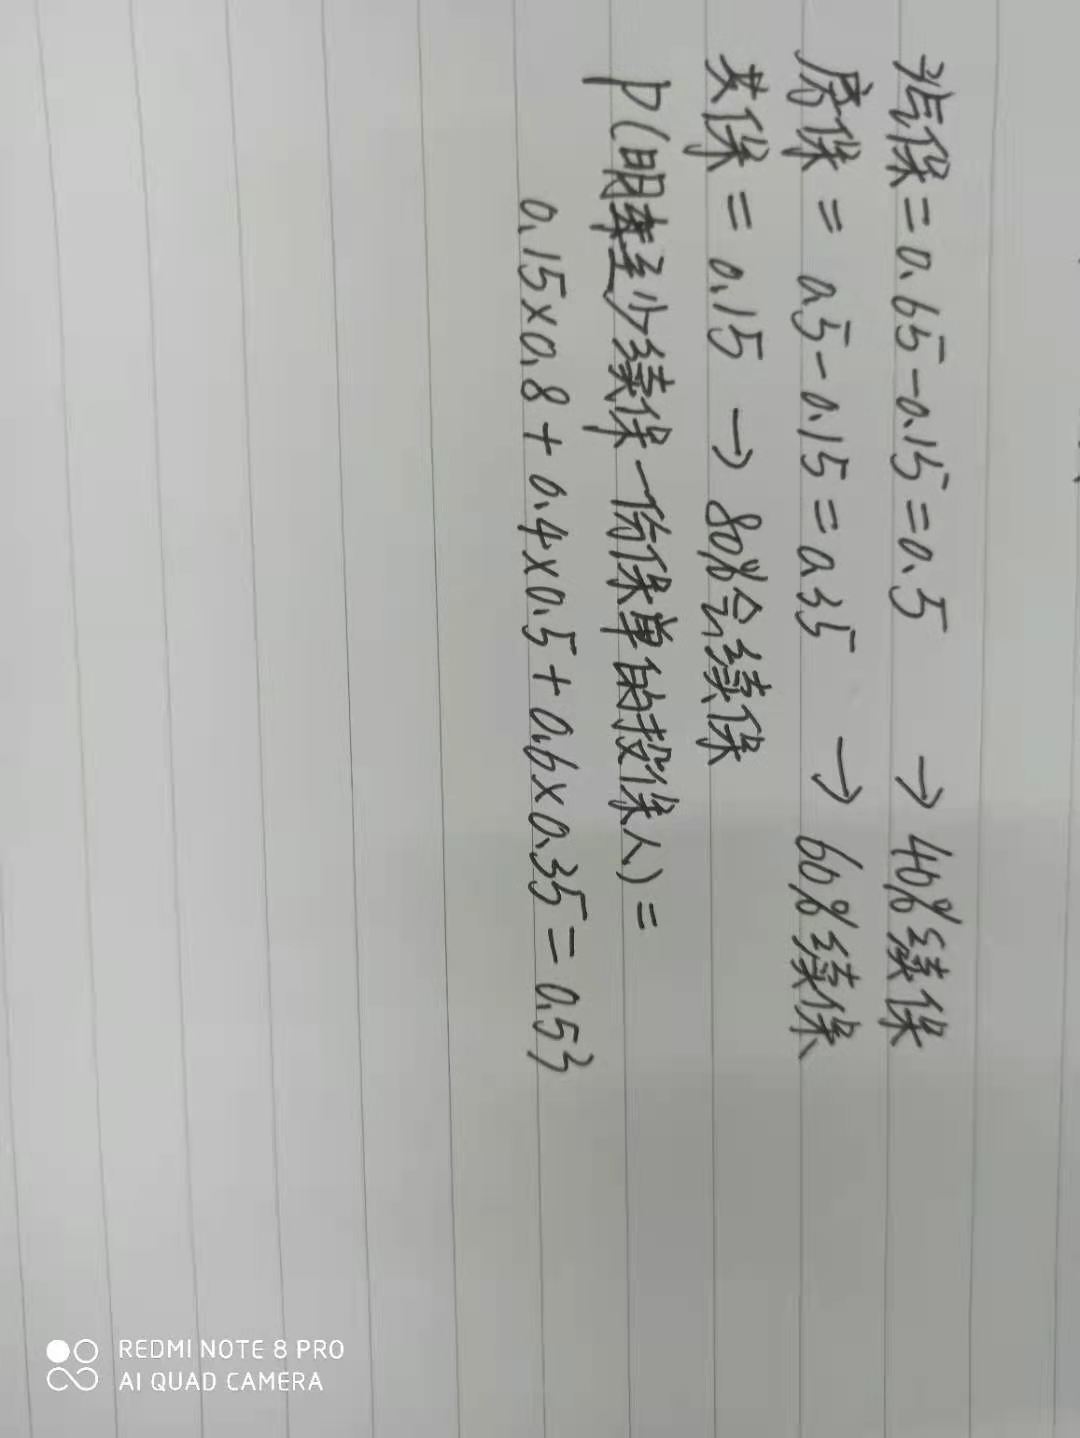 汽保=0.65-0.15=0.5 → 40%续保
房保=0.5-0.15=0.35 → 60%续保
共保=0.15 → 80%会续保
P(明年至少续保一份保单的投保人)=
0.15×0.8+0.4×0.5+0.6×0.35=0.53
REDMI NOTE 8 PRO
AI QUAD CAMERA